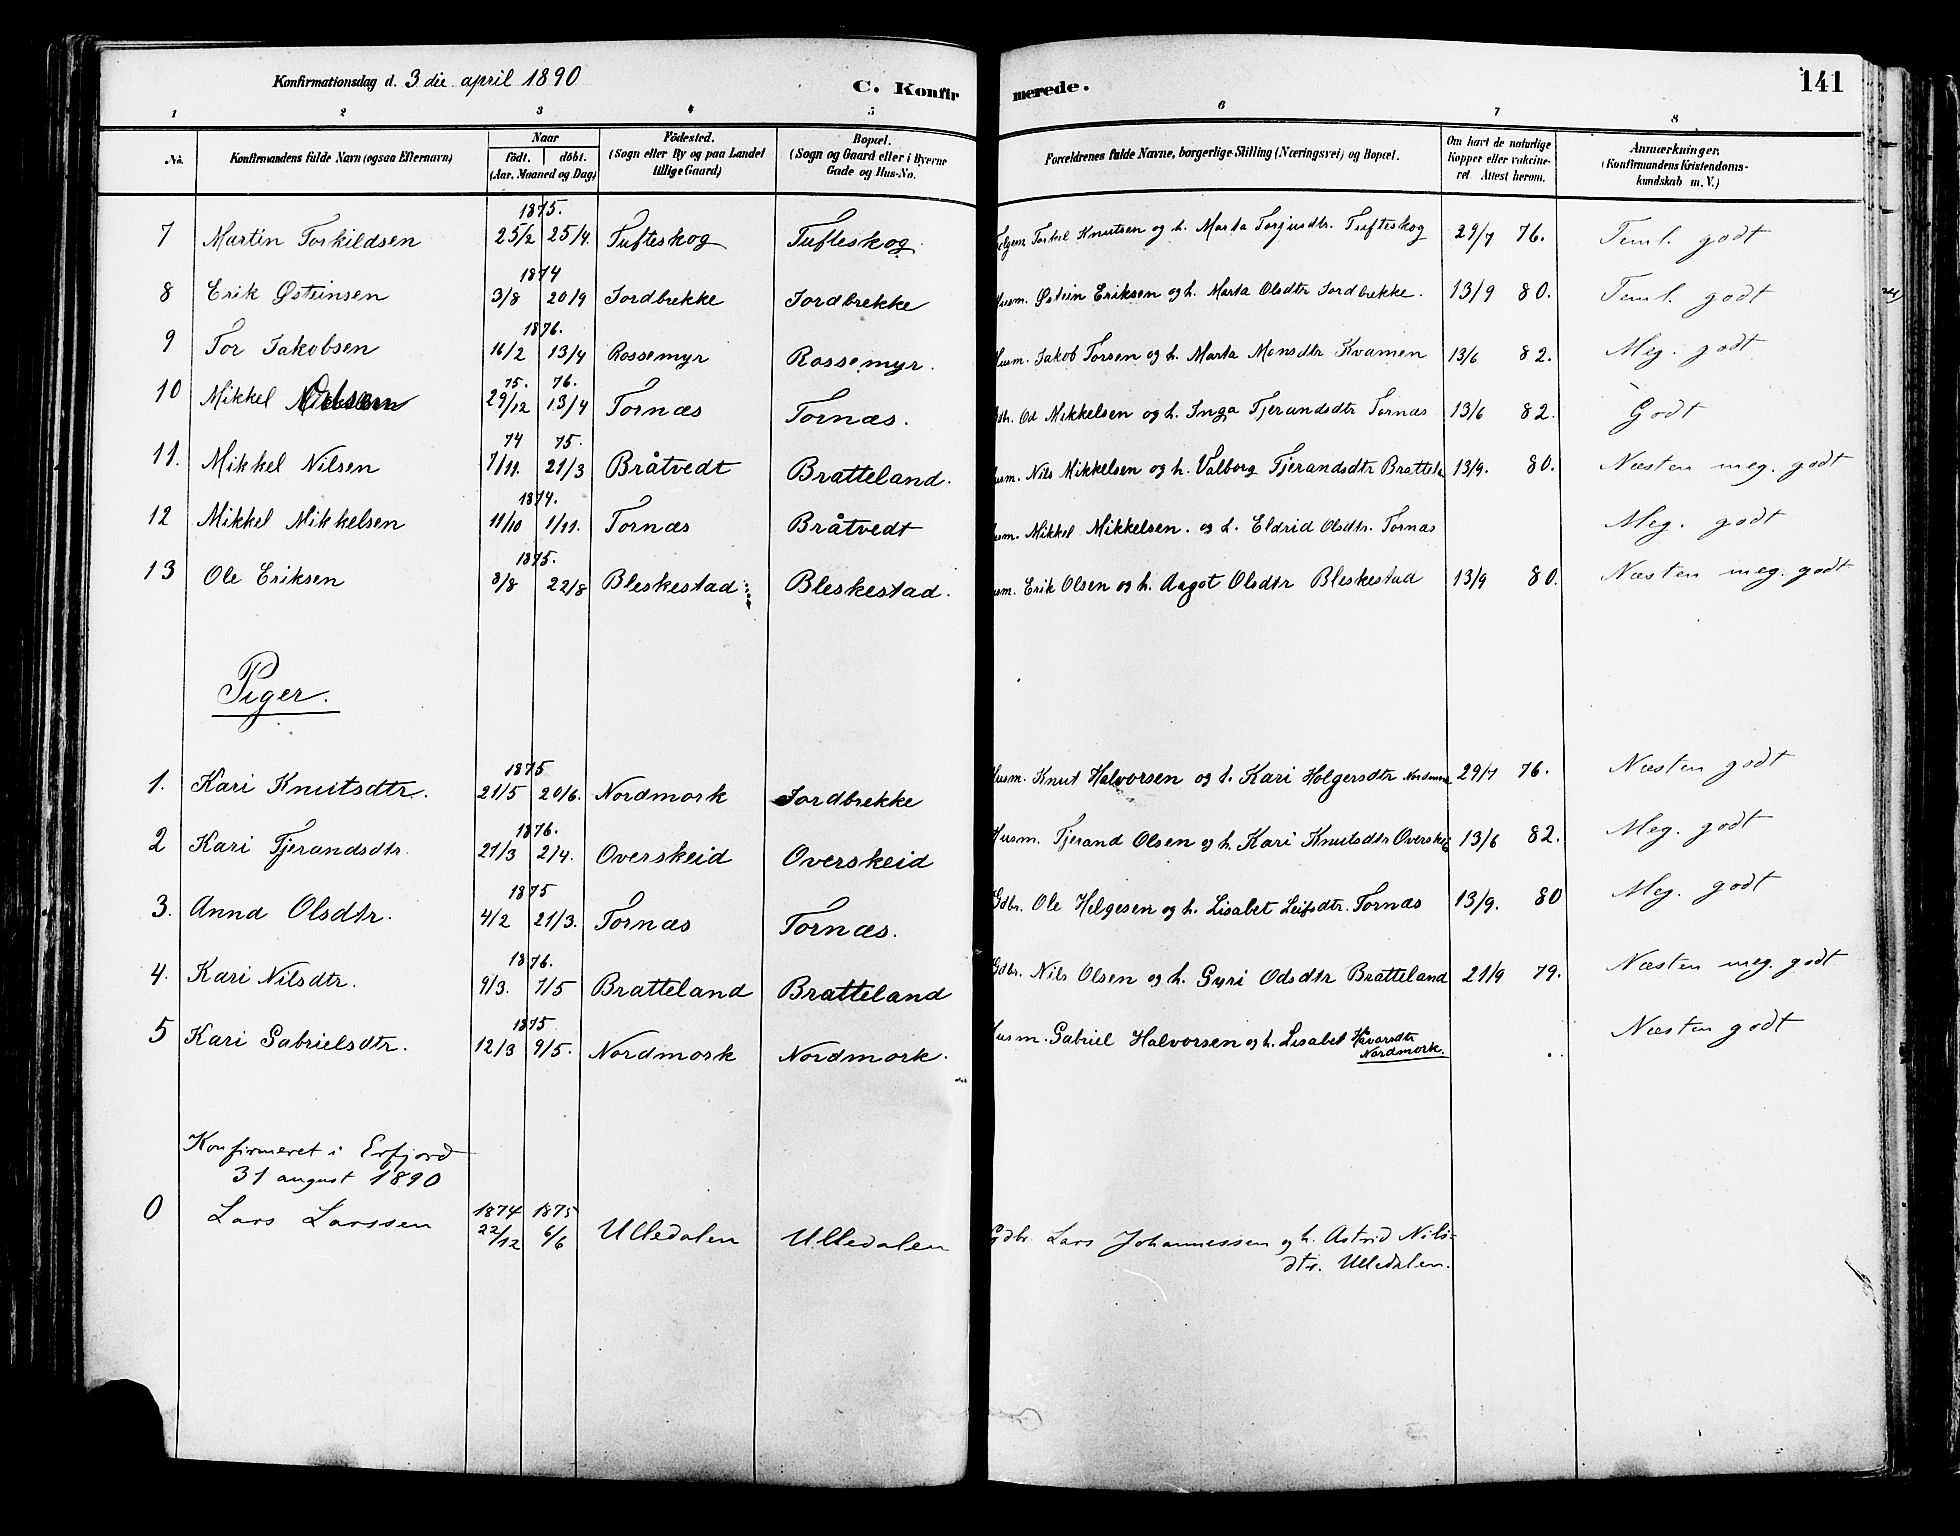 Konfirmationsdag d. 3die april 1890
C. Konfir merede. 141
1 2 3 4 5 6 7 8
No. Konfirmandens fulde Navn (ogsaa Efternavn) Naar födt. döbt. (Aar, Maaned og Dag) Födested. (Sogn eller By og paa Landet tillige Gaard) Bopæl. (Sogn og Gaard eller i Byerne Gade og Hus-No. Forældrenes fulde Navne, borgerlige Stilling (Næringsvei) og Bopæl. Om havt de naturlige Kopper eller vaccineret Attest herom. Anmærkninger. (Konfirmandens Kristendomskundskab m. V.)
1875.
7 Martin Torkildsen 25/2 25/4. Tufteskog Tufteskog. Torkel Knutsen og h. Marta Torjusdtr. Tufteskog 29/7 76. Teml. godt
1874
8 Erik Østeinsen 3/8 20/9 Jordbrekke Jordbrekke Husm. Østein Eriksen og h. Marta Olsdtr Jordbrekke. 13/9 80. Teml. godt
1876.
9 Tor Jakobsen 16/2 13/4 Rossemyr Rossemyr. Husm. Jakob Torsen og h. Marta Monsdtr Kvamen 13/6 82. Meg. godt
75. 76.
10 Mikkel Odsen 29/12 13/4 Tornæs Tornæs. Gdbr. Od Mikkelsen og h. Inga Tjerandsdtr Tornæs 13/6 82. Godt
74 75.
11. Mikkel Nilsen 7/11. 21/3 Bråtvedt Bratteland. Husm. Nils Mikkelsen og h. Valborg Tjerandsdtr Brattela 13/9. 80. Næsten meg. godt
1874.
12 Mikkel Mikkelsen 11/10 1/11. Tornæs Bråtvedt Husm. Mikkel Mikkelsen. og h. Eldrid Olsdtr. Tornæs Meg. godt
1875.
13 Ole Eriksen 8/8 22/8 Bleskestad Bleskestad. Husm. Erik Olsen og h. Aagot Olsdtr Bleskestad 13/9 80. Næsten meg. godt
Piger.
1875
1. Kari Knutsdtr. 21/5 20/6. Nordmork Jordbrekke Husm. Knut Halvorsen og h. Kari Holgersdtr Nordmork 29/7 76. Næsten godt
1876.
2 Kari Tjerandsdtr. 21/3 2/4. Overskeid Overskeid Husm. Tjerand Olsen og h. Kari Knutsdtr Overskeid 13/6 82. Meg. godt
1875
3. Anna Olsdtr. 4/2 21/3. Tornæs Tornæs. Gdbr. Ole Helgesen og h. Lisabet Leifsdtr. Tornæs 13/9. 80 Meg. godt
1876.
4. Kari Nilsdtr. 9/3. 7/5 Bratteland Bratteland Gdbr. Nils Olsen og h. Gyri Odsdtr Bratteland 21/9 79. Næsten meg. godt
1875
5 Kari Gabrielsdtr. 12/3 9/5. Nordmork Nordmork. Husm. Gabriel Halvorsen og h. Lisabet Havarsdtr Næsten godt
Nordmork.
Konfirmeret i Erfjord
31 august 1890
1874 1875
0 Lars Larssen 22/12 6/6 Ulledalen Ulledalen Gdbr. Lars Johannessen og h. Astrid Nils-
dtr. Ulledalen.